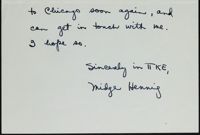 to Chicago soon again, and
can get in touch with me.
I hope so.
Sincerely in ΠΚΕ,
Midge Hennig